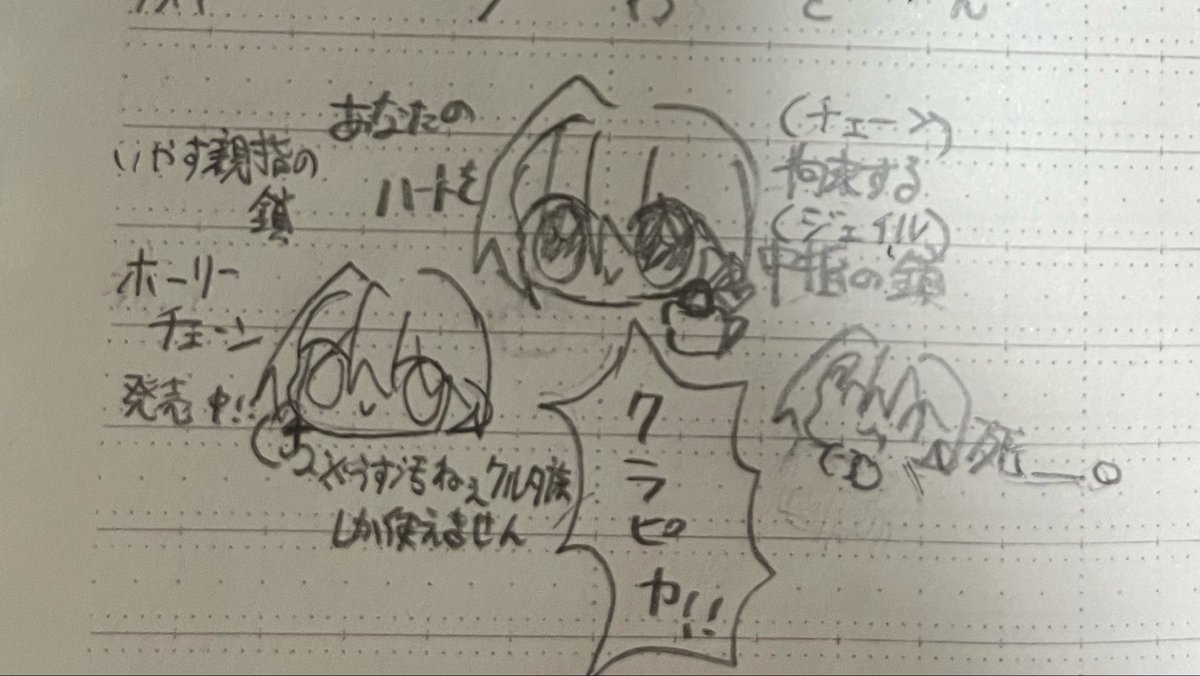 あなたの
ハートを
(チェーン)
拘束する
(ジェイル)
中指の鎖
いやす親指の
鎖
ホーリー
チェーン
発売中!!
うす汚ねぇクルタ族
しか使えません
クラピカ!!
死